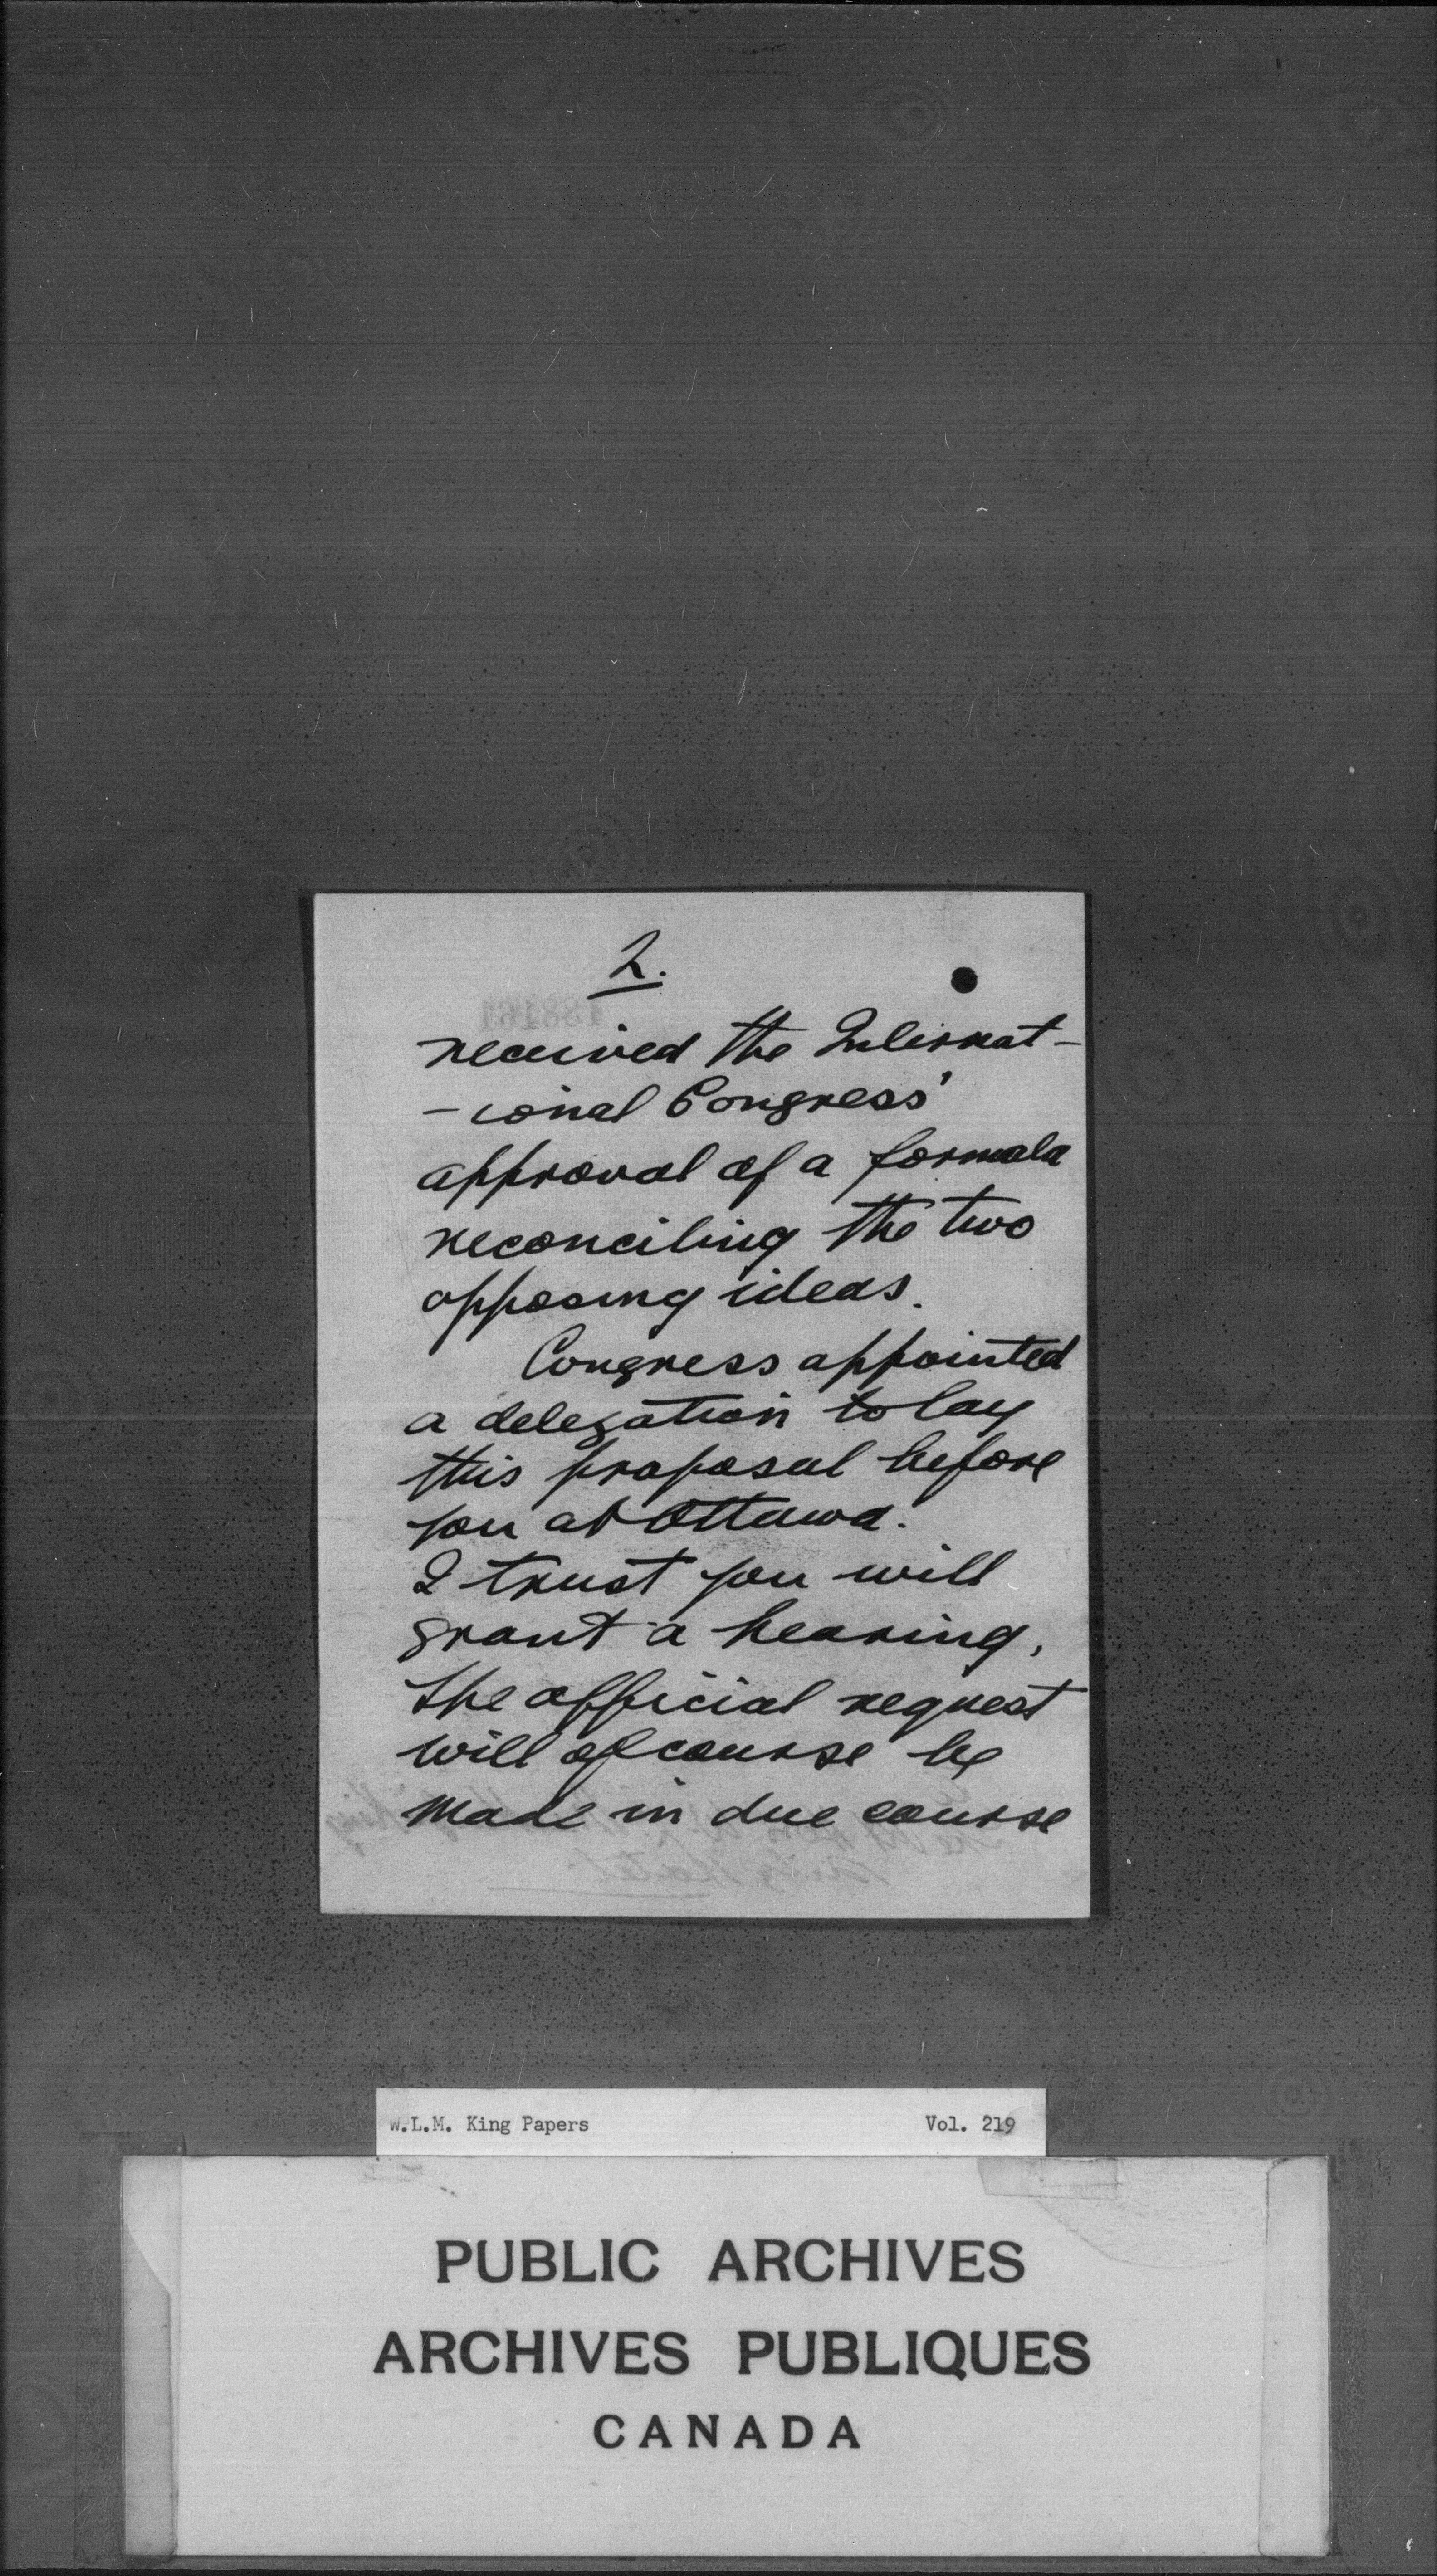 2.
received the Internat-
-ional Congress'
approval of a formula
reconciling the two
opposing ideas.
Congress appointed
a delegation to lay
this proposal before
you at Ottawa.
I trust you will
grant a hearing,
the official request
will of course be
made in due course
W.L.M. King Papers Vol. 219
PUBLIC ARCHIVES
ARCHIVES PUBLIQUES
CANADA